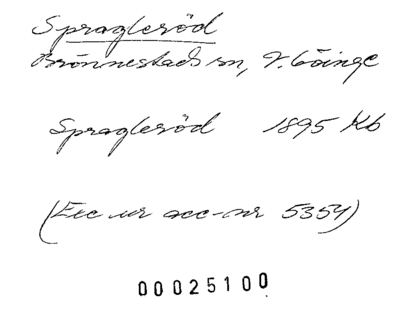 Spragleröd
Brönnestads sn, V. Göinge
Spragleröd 1895 Kb
(Exc ur acc-nr 5354)
00025100